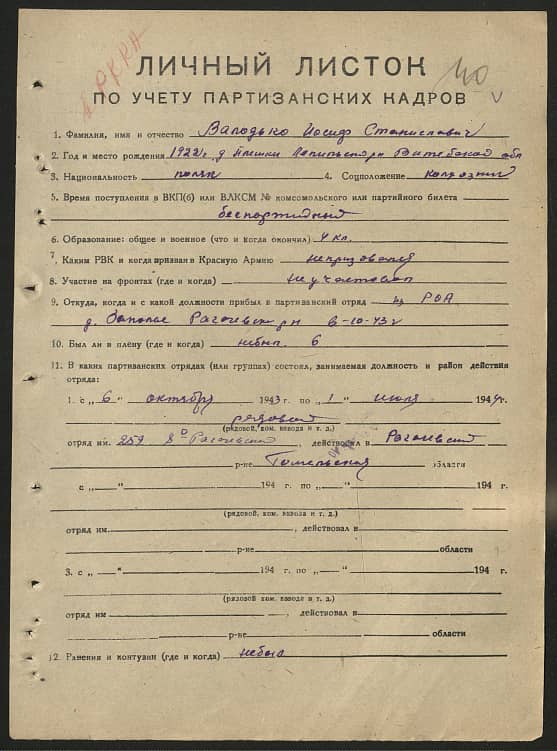 в РККА
40
ЛИЧНЫЙ ЛИСТОК
ПО УЧЕТУ ПАРТИЗАНСКИХ КАДРОВ
1. Фамилия, имя и отчество Валодько Иосиф Станиславич
2. Год и место рождения 1922 г. д Плешки Лепильского р-н Витебской обл
3. Национальность поляк 4. Соцположение колхозник
5. Время поступления в ВКП(б) или ВЛКСМ № комсомольского или партийного билета
беспартийный
6. Образование: общее и военное (что и когда окончил) 4 кл.
7. Каким РВК и когда призван в Красную Армию непризовался
8. Участие на фронтах (где и когда) неучаствовал
9. Откуда, когда и с какой должности прибыл в партизанский отряд из РОА
д. Заполье р-н 6-10-43 г
10. Был ли в плену (где и когда) небыл
11. В каких партизанских отрядах (или группах) состоял, занимаемая должность и район действия
отряда:
1. с „6" октября 1943 г. по „1" июля 1944 г.
рядовой
(рядовой, ком. взвода и т. д.)
отряд им. 257, действовал в
р-не Гомельская области
с „ " 194 г. по „ " 194 г.
(рядовой, ком. взвода и т. д.)
отряд им. , действовал в
р-не области
3. с „ " 194 г. по „ " 194 г.
(рядовой ком. взвода и т. д.)
отряд им , действовал в
р-не области
12. Ранения и контузии (где и когда) небыл